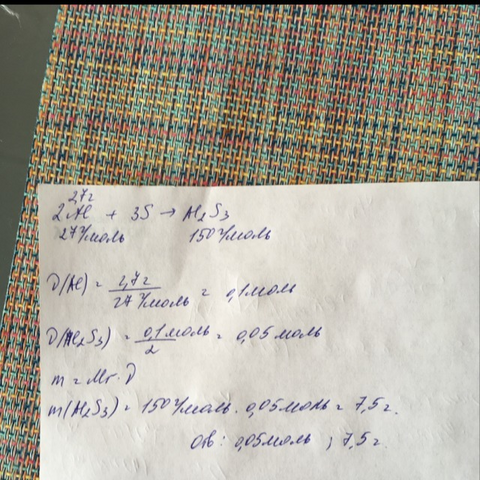 2,7г
2Al + 3S → Al2S3
27г/моль 150г/моль
ν(Al) = 2,7г / 27г/моль = 0,1моль
ν(Al2S3) = 0,1моль / 2 = 0,05моль
m = Mr · ν
m(Al2S3) = 150г/моль · 0,05моль = 7,5г.
Отв: 0,05моль ; 7,5г.